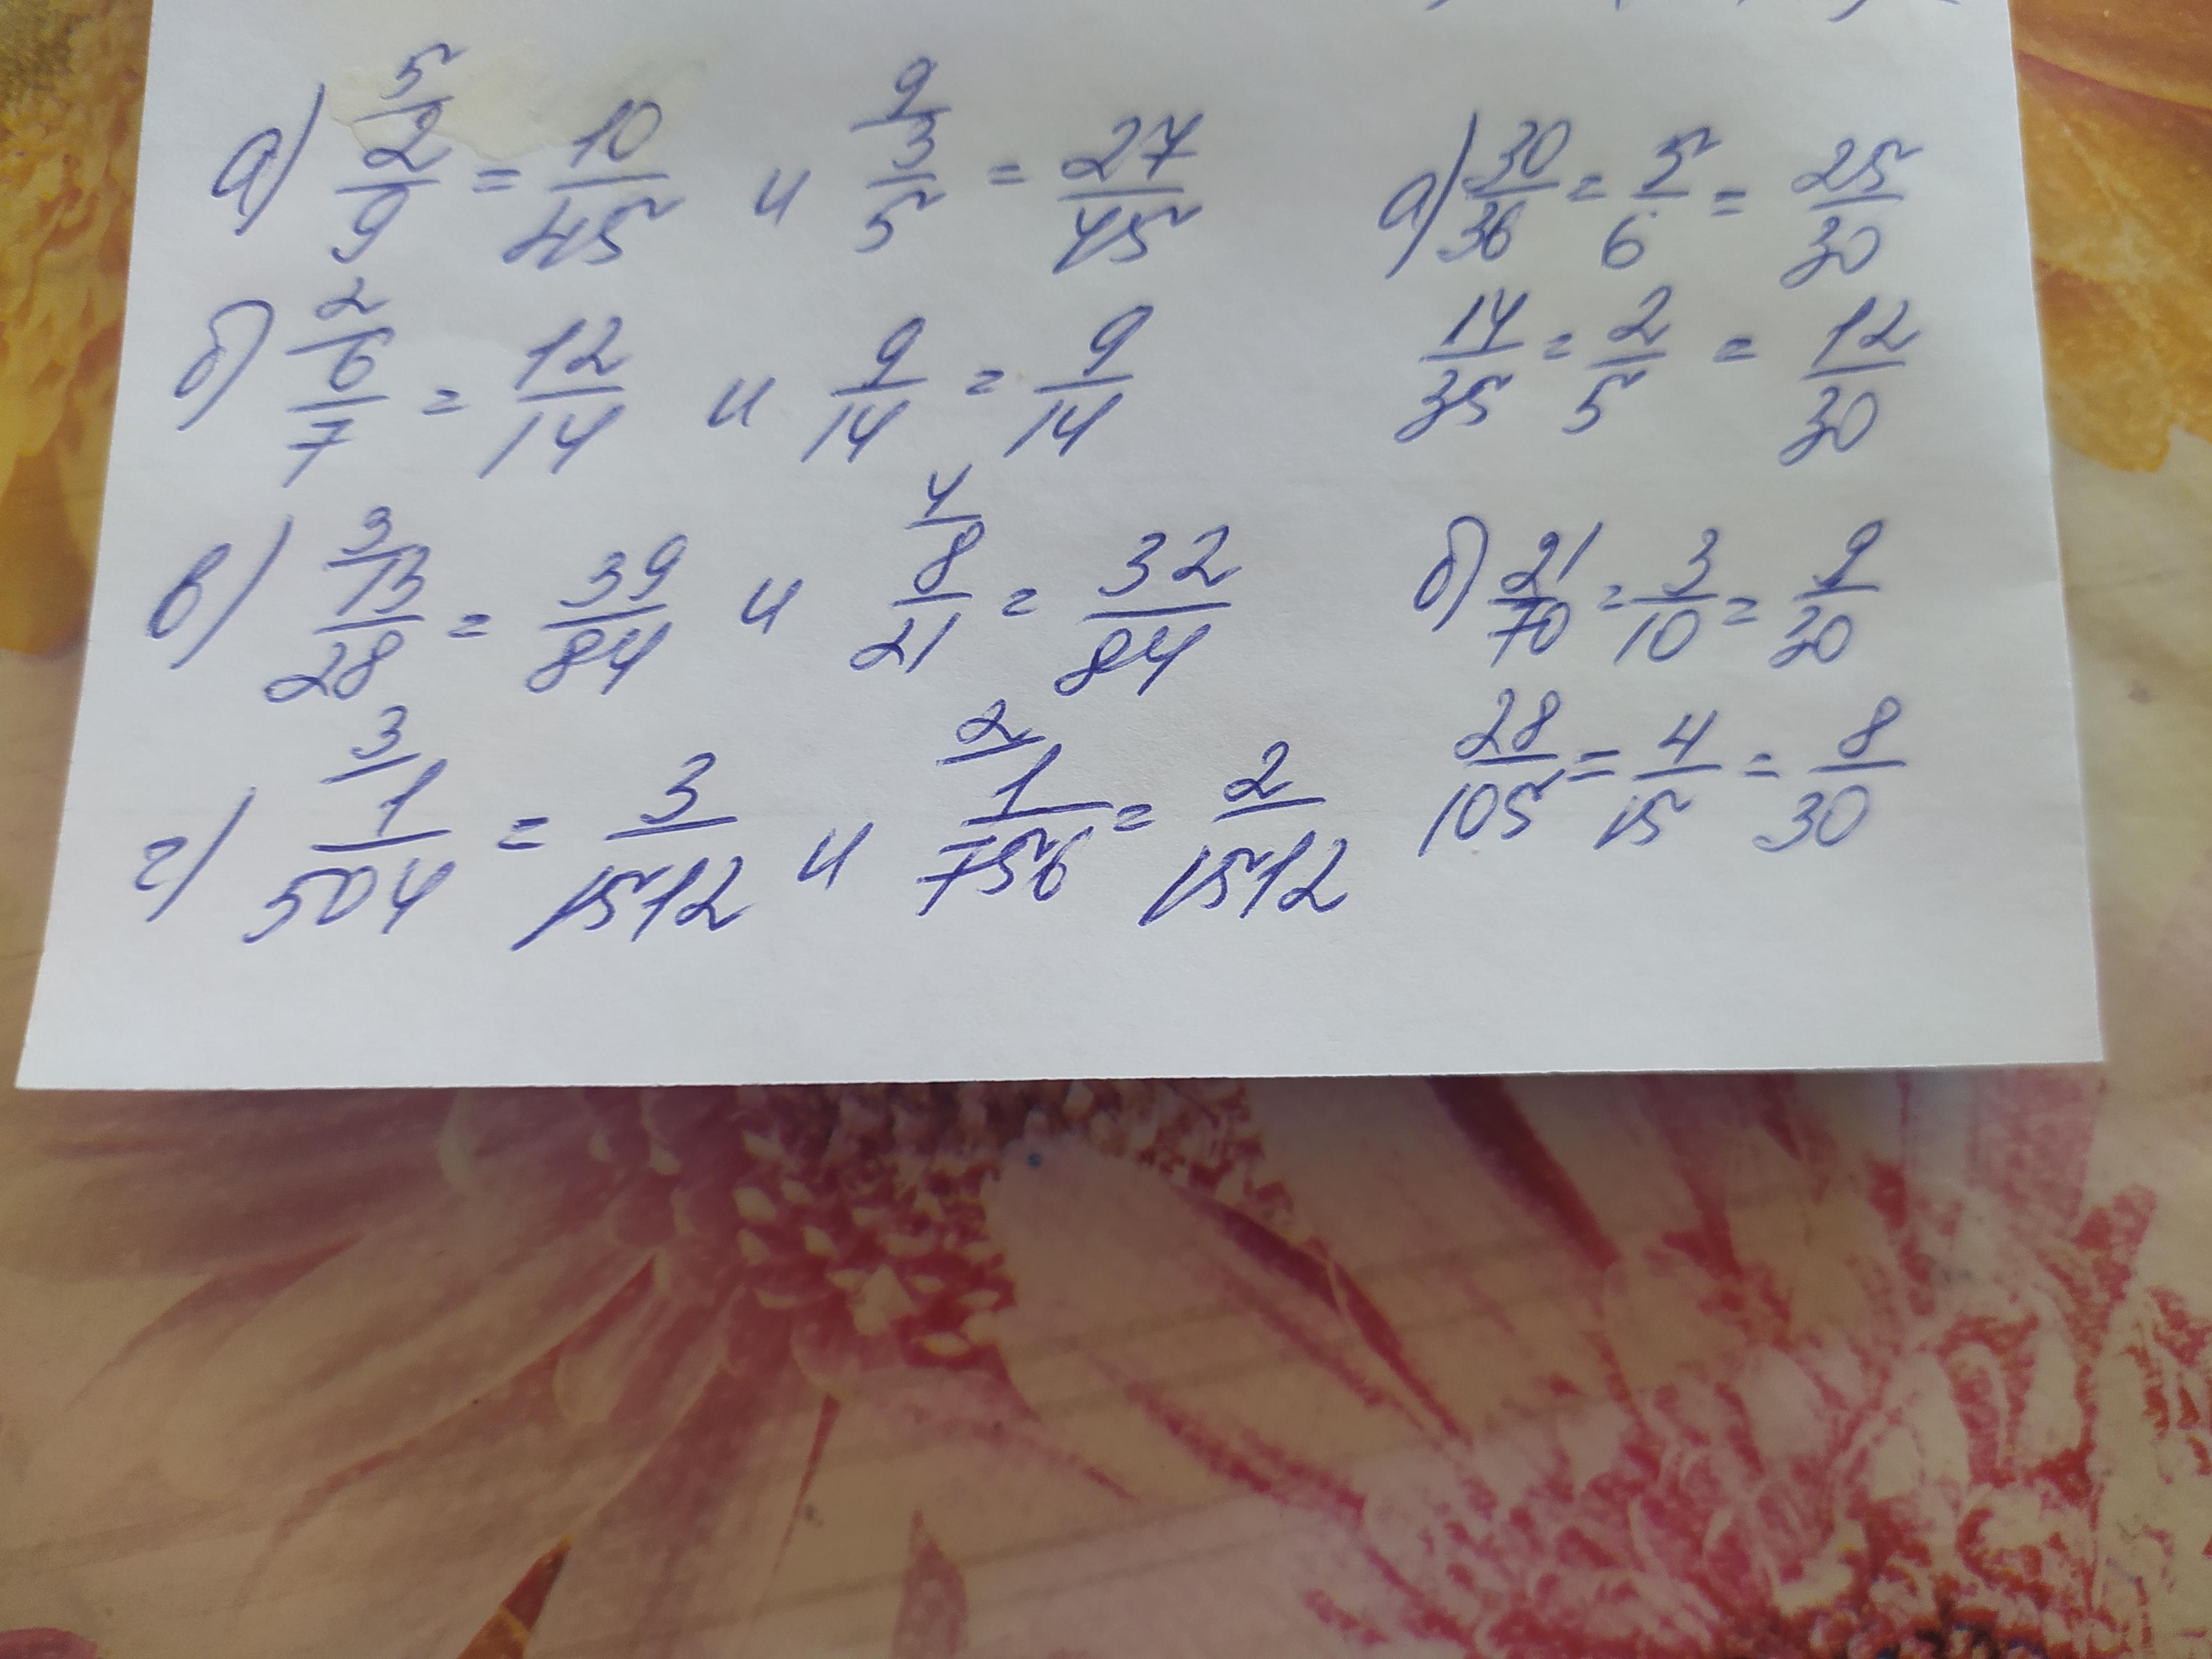 а) 5/ 2/9 = 10/45 и 9/ 3/5 = 27/45
б) 2/ 6/7 = 12/14 и 9/14 = 9/14
в) 3/ 13/28 = 39/84 и 4/ 8/21 = 32/84
г) 3/ 1/504 = 3/1512 и 2/ 1/756 = 2/1512
а) 30/36 = 5/6 = 25/30
14/35 = 2/5 = 12/30
б) 21/70 = 3/10 = 9/30
28/105 = 4/15 = 8/30